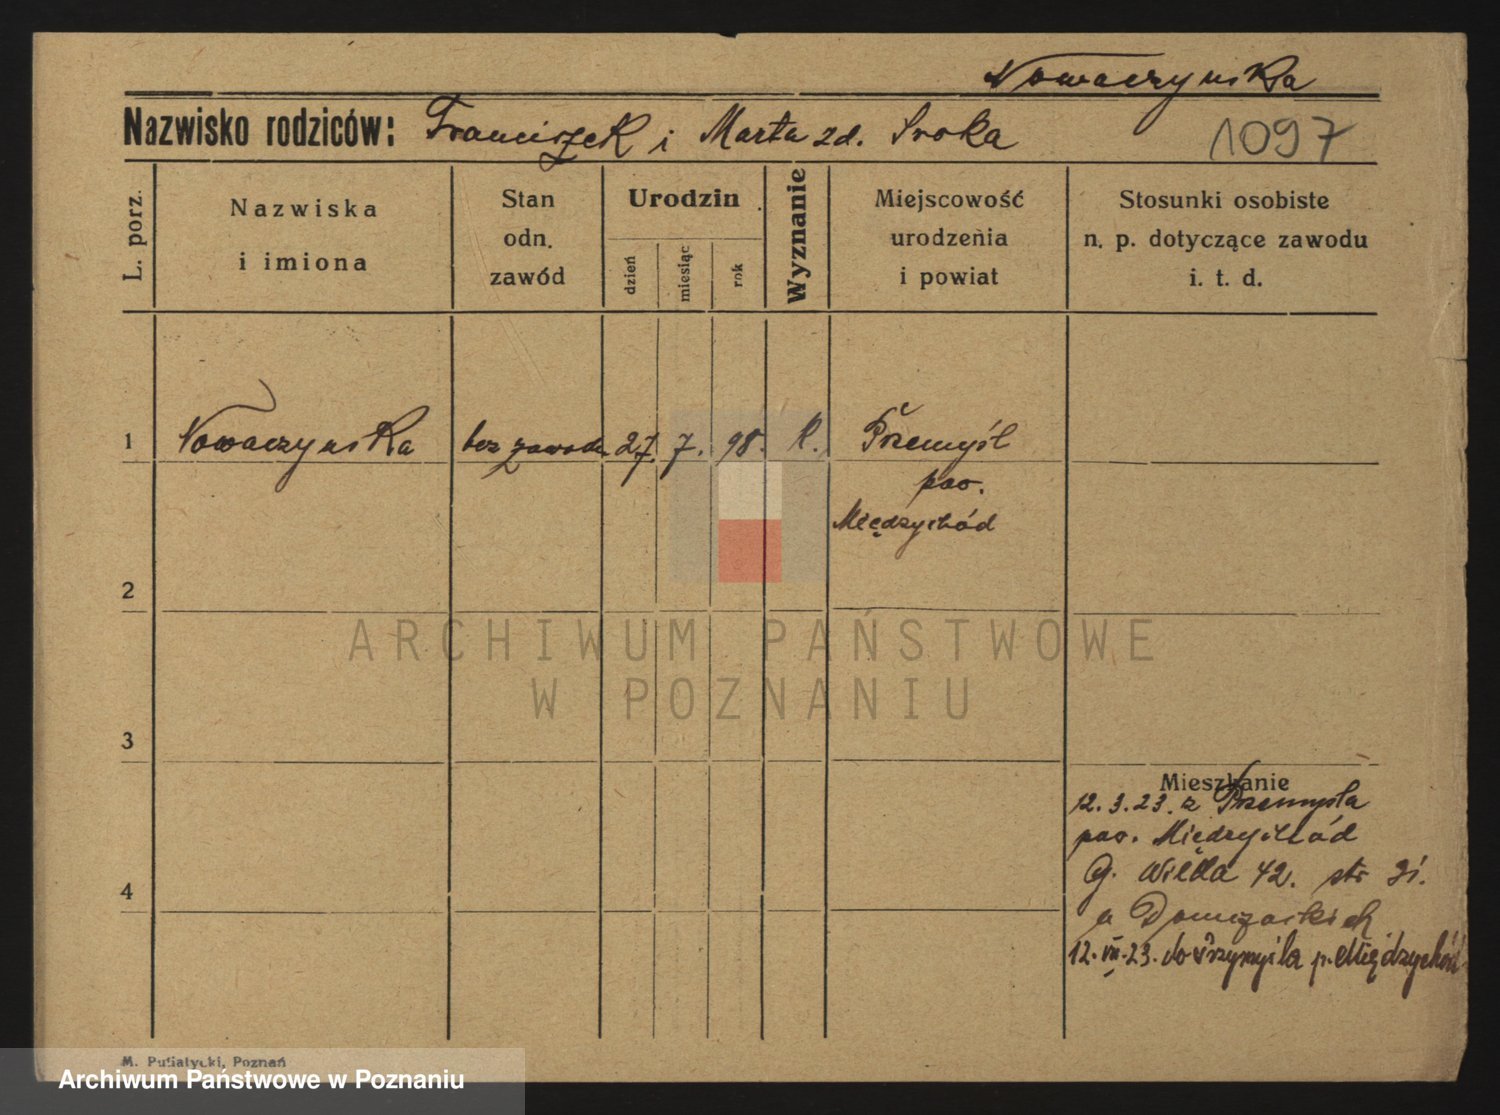 Nowaczynska
Nazwisko rodziców: Franciszek i Marta zd. Sroka
1097
L. porz.
Nazwiska
i imiona
Stan
odn.
zawód
Urodzin
dzień
miesiąc
rok
Wyznanie
Miejscowość
urodzenia
i powiat
Stosunki osobiste
n. p. dotyczące zawodu
i. t. d.
1
Nowaczynska
bez zawodu
27. 7. 98.
K.
Przemyśl
pow.
Międzychód
2
ARCHIWUM PAŃSTWOWE
W POZNANIU
3
Mieszkanie
12. 3. 23. z Przemysla
pow. Międzychód
G. Wilda 42.
4
u
12. VII. 23. do Przymyśla p. Międzychód
M. Putiatycki, Poznań
Archiwum Państwowe w Poznaniu